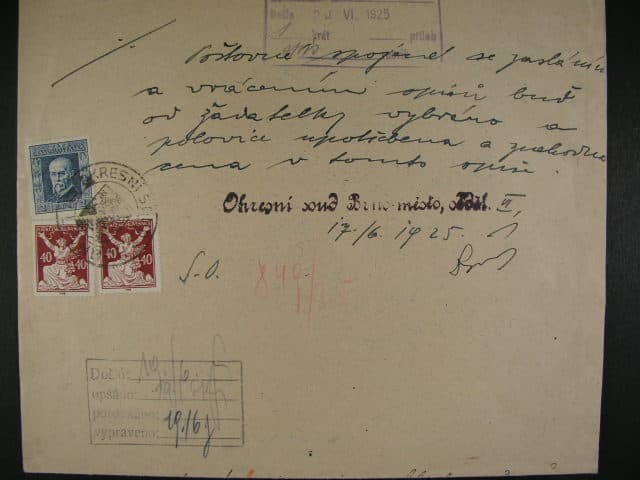 Došlo 2 VI. 1925
1 krát příloh
Poštovné spojené se zasláním
a vrácením spisů buď
od žadatelky vybráno a
polovice upotřebena a znehodno
cena v tomto spise.
OKRESNÍ S
40 40
40 40
Okresní soud Brno-město, odděl. VI,
17/6. 1925.
S.O.
849/25
Došlo:
opsáno:
porovnáno:
vypraveno: 19/6